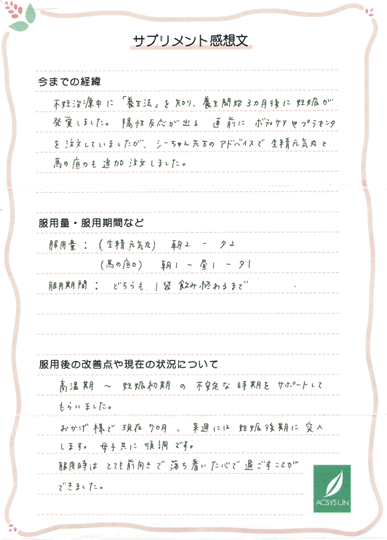 サプリメント感想文
今までの経緯
不妊治療中に「養生法」を知り、養生開始3カ月後に妊娠が
発覚しました。陽性反応が出る 直前に ボディケアやプラセンタ
を注文していましたが、じーちゃん先生のアドバイスで 生精元気丸と
馬の底力も追加注文しました。
服用量・服用期間など
服用量:(生精元気丸) 朝2 - 夕2
(馬の底力) 朝1 - 昼1 - 夕1
服用期間: どちらも 1袋飲み終わるまで
服用後の改善点や現在の状況について
高温期 ~ 妊娠初期 の 不安定な 時期を サポートして
もらいました。
おかげ様で 現在 7カ月 、来週には 妊娠後期に 突入
します。母子共に 順調 です。
服用時は とても前向きで 落ち着いた心で過ごすことが
できました。
ACSYS UN